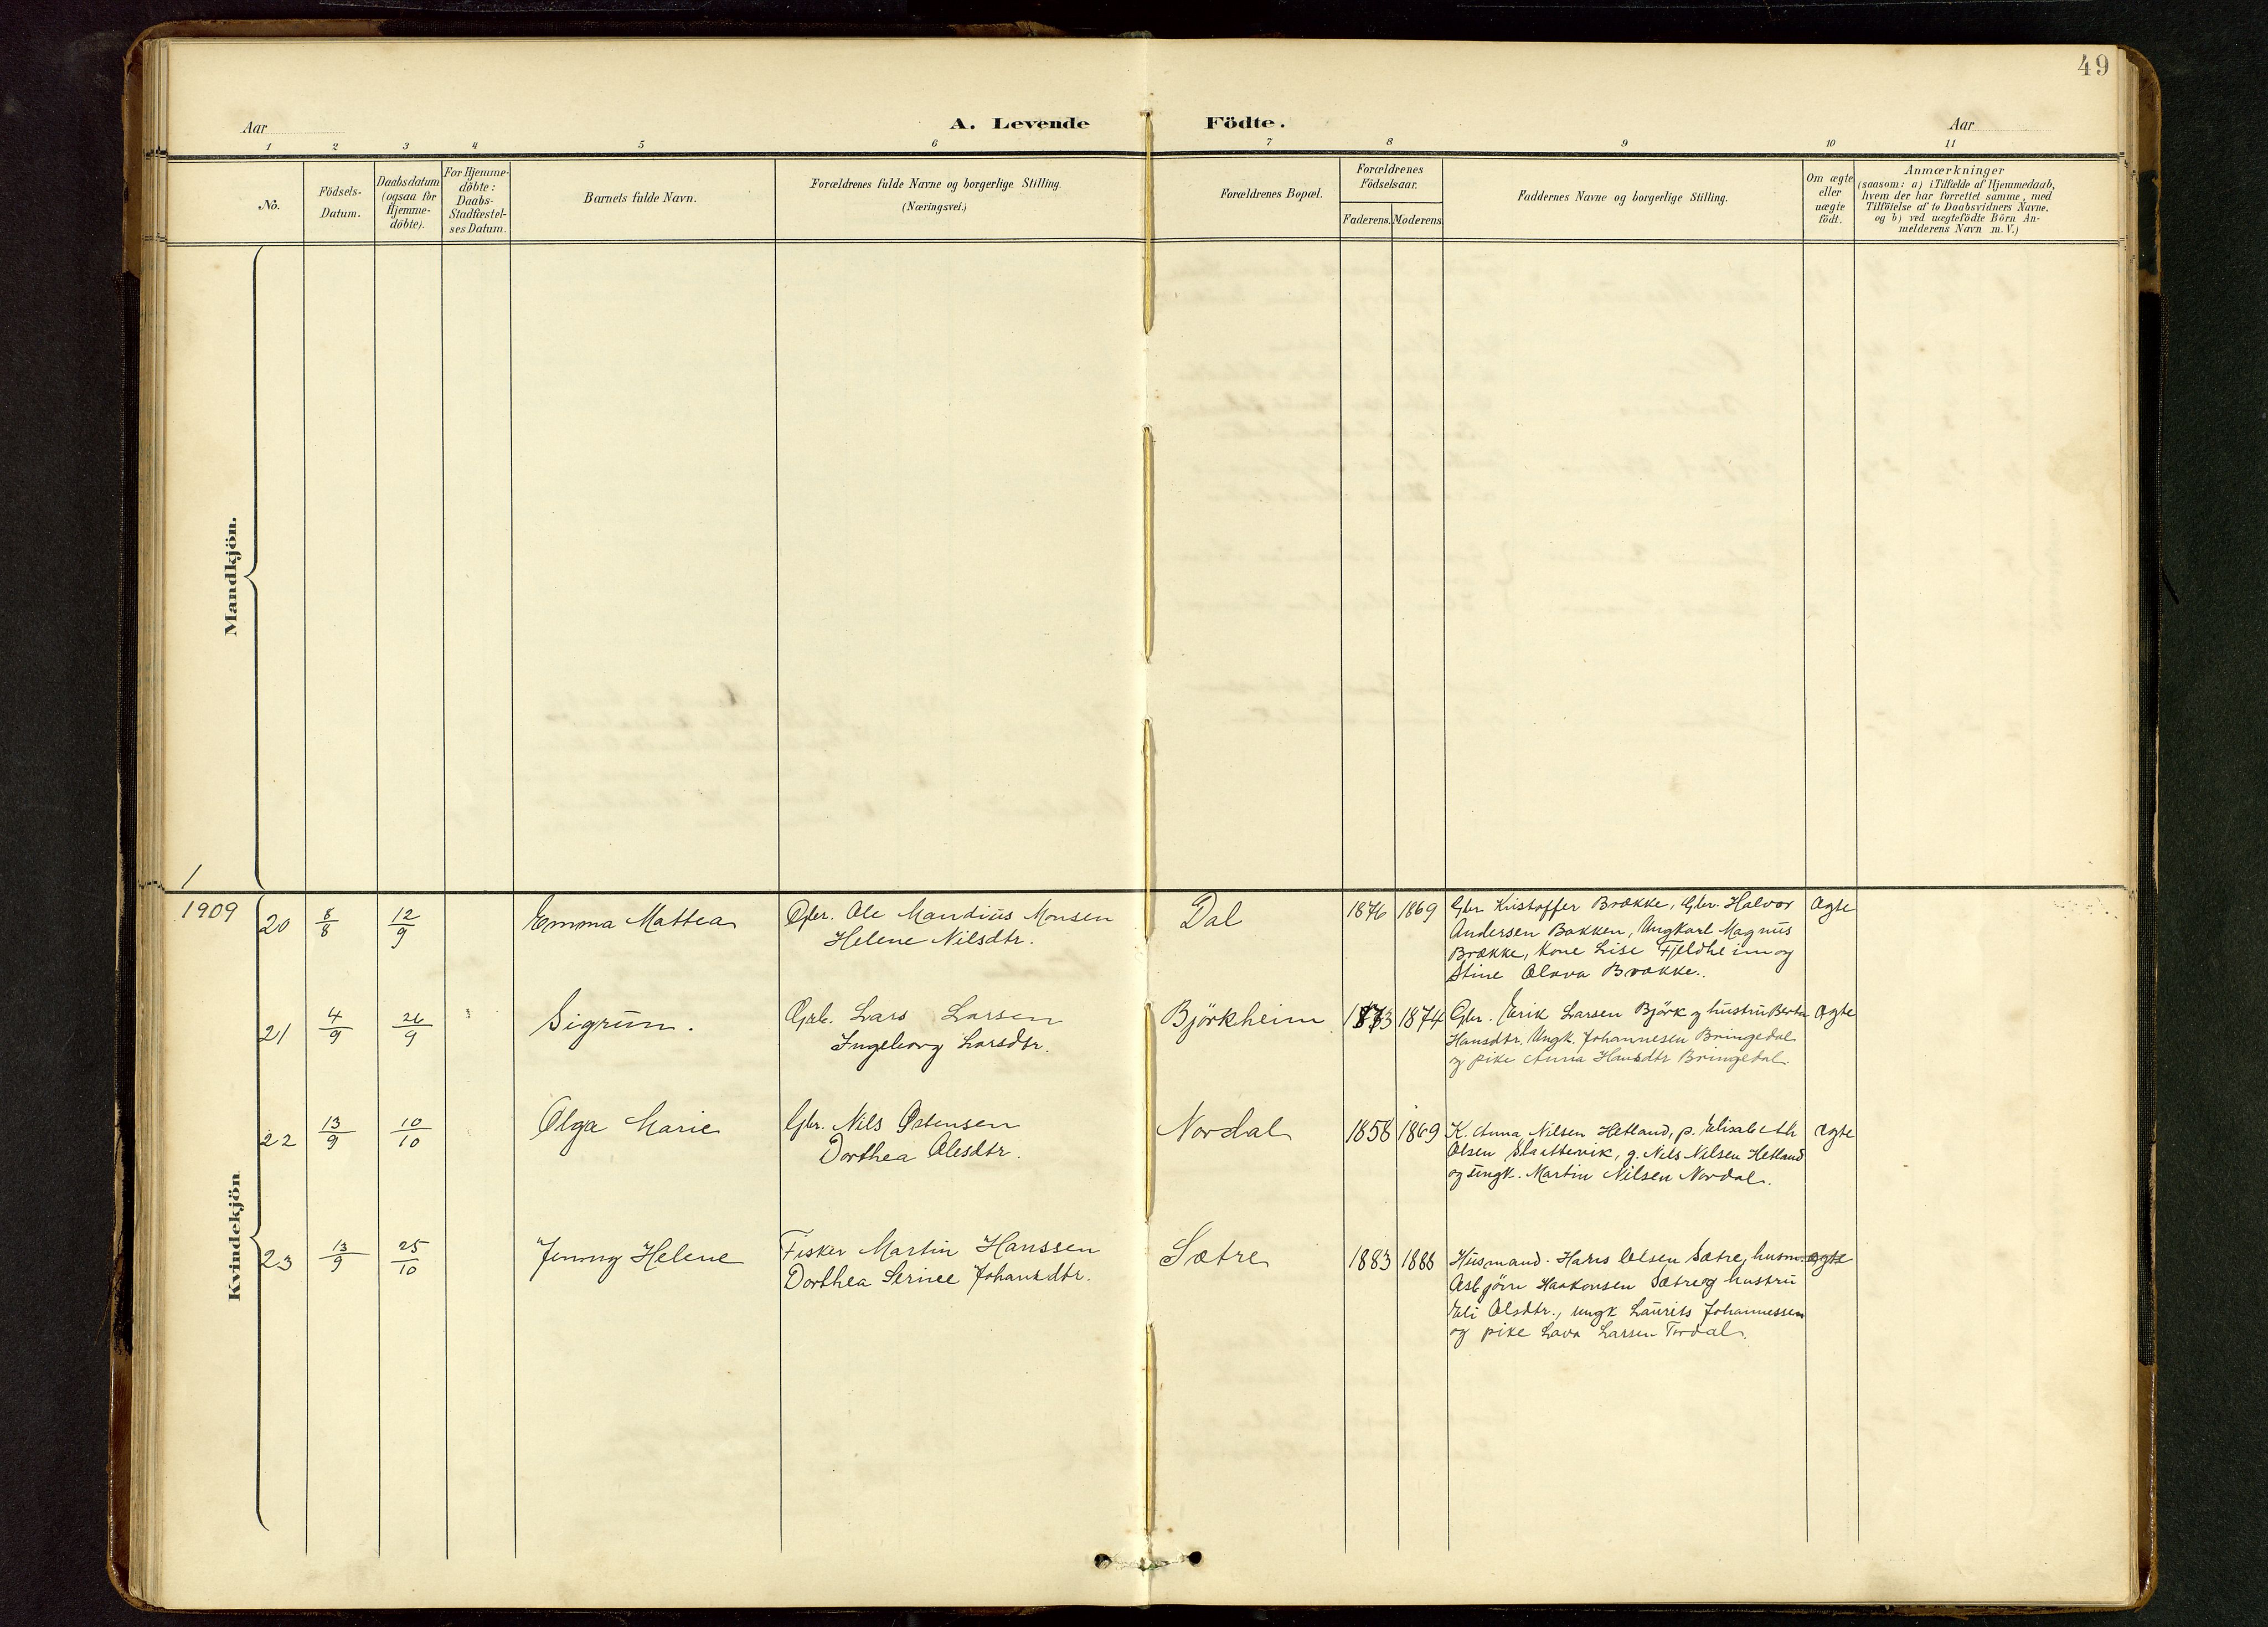 49
Aar
A. Levende Födte.
Aar
1 2 3 4 5 6 7 8 9 10 11
No.
Födsels-
Datum.
Daabsdatum
(ogsaa for
Hjemme-
döbte).
For Hjemme-
döbte:
Daabs-
Stadfæstel-
ses Datum.
Barnets fulde Navn.
Forældrenes fulde Navne og borgerlige Stilling.
(Næringsvei.)
Forældrenes Bopæl.
Forældrenes
Födselsaar.
Faderens. Moderens
Faddernes Navne og borgerlige Stilling.
Om ægte
eller
uægte
födt.
Anmærkninger
(saasom: a) i Tilfælde af Hjemmedaab,
hvem der har forrettet samme, med
Tilföielse af to Daabsvidners Navne,
og b) ved uægtefödte Börn An-
melderens Navn m. V.)
Mandkjön.
1
1909
Kvindekjön
20
8/8
12/9
Emma Mattea
Gbr. Ole Mandius Monsen
Helene Nilsdtr.
Dal
1876
1869
Gbr Kristoffer Brække, Gbr. Halvor
Andersen Bakken, Ungkarl Magnus
Brække, Kone Lise Fjeldheim og
Stine Olava Brække.
Ægte
21
4/9
26/9
Sigrun.
Lars Larsen
Ingeborg Larsdtr.
Björkheim
1873
1874
Gbr. Erik Larsen Björk og hustru Berta
Hansdtr. Ungk. Johannesen Bringedal
og pike Anna Hansdtr Bringedal.
Ægte
22
13/9
10/10
Olga Marie
Gbr. Nils Østensen
Dorthea Olesdtr.
Nordal
1858
1869
K. Anna Nilsen Hetland, p. Elisabeth
Olsen Slaattevik, g. Nils Nilsen Hetland
og ungk. Martin Nilsen Nordal.
Ægte
23
13/9
25/10
Jenny Helene
Fisker Martin Hanssen
Dorthea Serine Johansdtr.
Sætre
1883
1888
Husmand. Hans Olsen Sætre, husm.
Asbjörn Haakonsen Sætre og hustru
Eli Olsdtr., ungk Laurits Johannessen
og pike Lava Larsen Tordal.
ægte